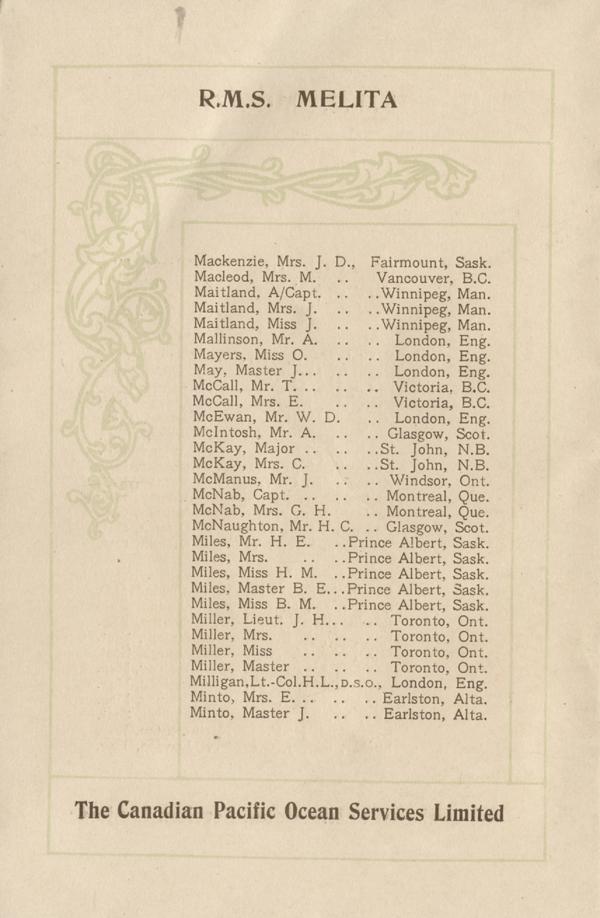 R.M.S. MELITA
Mackenzie, Mrs. J. D., Fairmount, Sask.
Macleod, Mrs. M. .. Vancouver, B.C.
Maitland, A/Capt. .. ..Winnipeg, Man.
Maitland, Mrs. J. .. ..Winnipeg, Man.
Maitland, Miss J. .. ..Winnipeg, Man.
Mallinson, Mr. A. .. .. London, Eng.
Mayers, Miss O. .. .. London, Eng.
May, Master J... .. .. London, Eng.
McCall, Mr. T. .. .. .. Victoria, B.C.
McCall, Mrs. E. .. .. Victoria, B.C.
McEwan, Mr. W. D. .. London, Eng.
McIntosh, Mr. A. .. .. Glasgow, Scot.
McKay, Major .. .. ..St. John, N.B.
McKay, Mrs. C. .. ..St. John, N.B.
McManus, Mr. J. .. .. Windsor, Ont.
McNab, Capt. .. .. .. Montreal, Que.
McNab, Mrs. G. H. .. Montreal, Que.
McNaughton, Mr. H. C. .. Glasgow, Scot.
Miles, Mr. H. E. ..Prince Albert, Sask.
Miles, Mrs. .. ..Prince Albert, Sask.
Miles, Miss H. M. ..Prince Albert, Sask.
Miles, Master B. E...Prince Albert, Sask.
Miles, Miss B. M. ..Prince Albert, Sask.
Miller, Lieut. J. H... .. Toronto, Ont.
Miller, Mrs. .. .. .. Toronto, Ont.
Miller, Miss .. .. .. Toronto, Ont.
Miller, Master .. .. .. Toronto, Ont.
Milligan,Lt.-Col.H.L.,D.S.O., London, Eng.
Minto, Mrs. E. .. .. .. Earlston, Alta.
Minto, Master J. .. .. Earlston, Alta.
The Canadian Pacific Ocean Services Limited